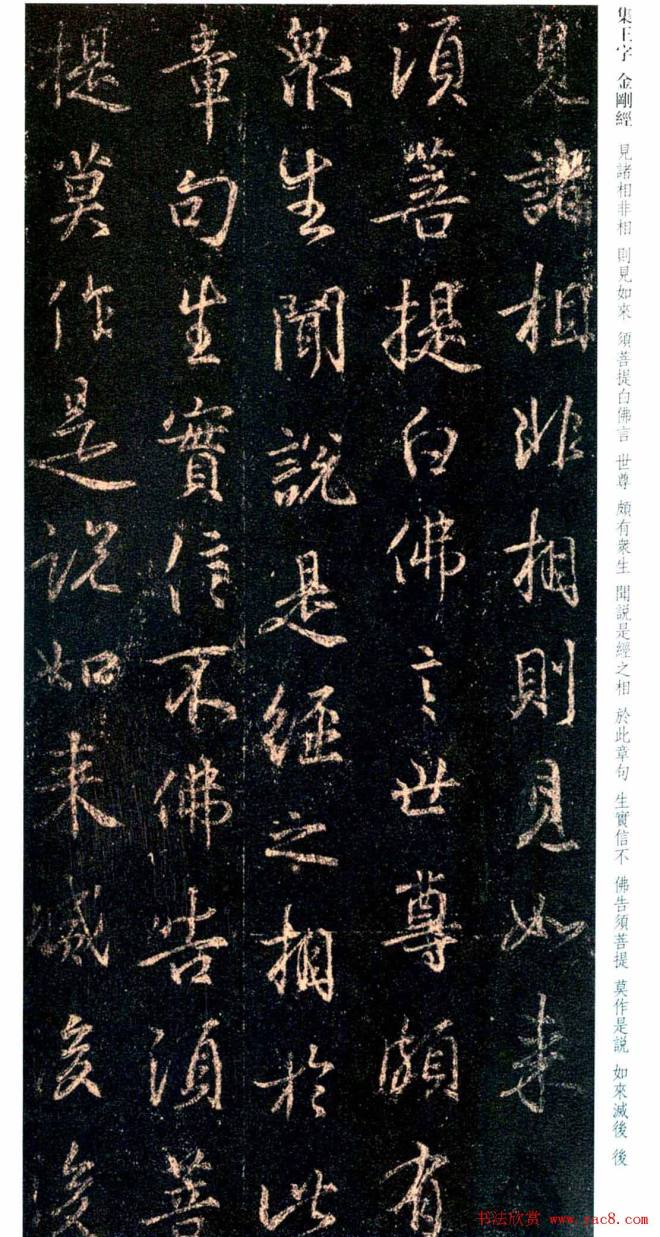 集王字 金剛經 見諸相非相 則見如來 須菩提白佛言 世尊 頗有衆生 聞説是經之相 於此章句 生實信不 佛告須菩提 莫作是説 如來滅後 後
見諸相非相則見如来
須菩提白佛言世尊頗有
衆生聞說是経之相於此
章句生實信不佛告須菩
提莫作是说如来滅後後
书法欣赏 www.yac8.com